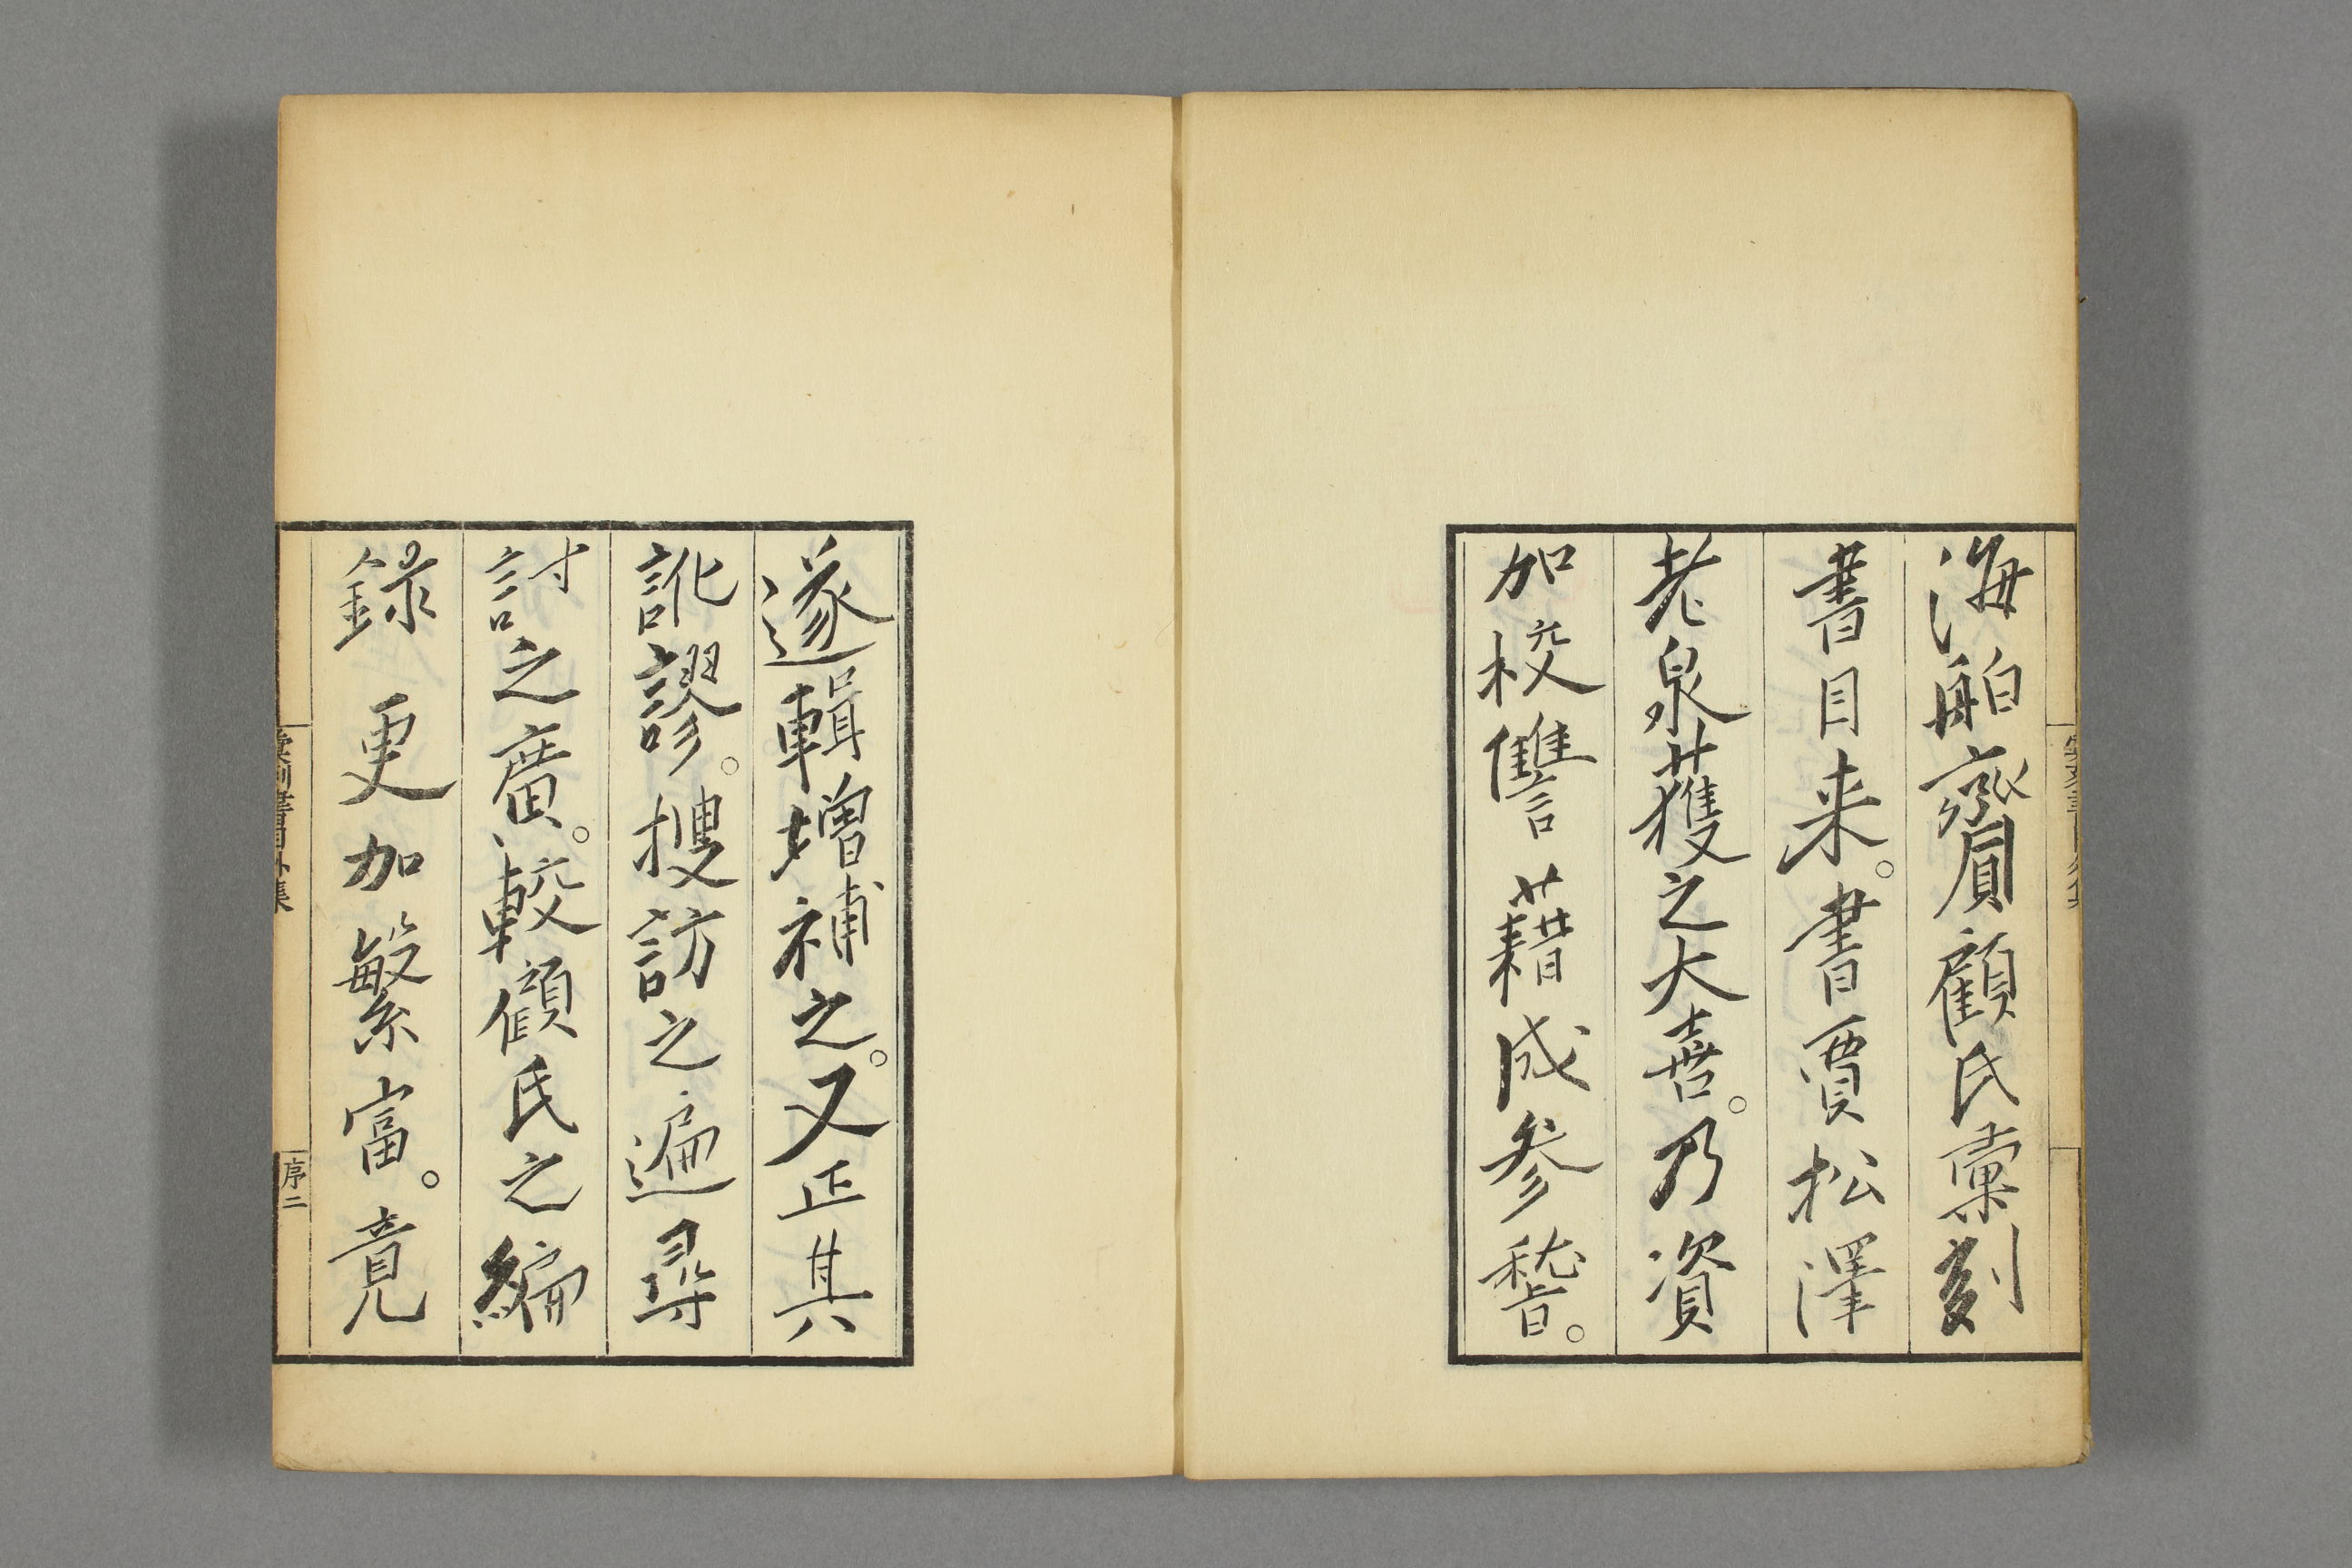 海舶齎顧氏彙刻
書目来。書賈松澤
老泉獲之大喜。乃資
加校讐藉成參嵇。
遂輯增補之。又正其
訛謬。搜訪之遍尋
討之廣。較顧氏之編
錄更加繁富。竟
彙刻書目外集
序二